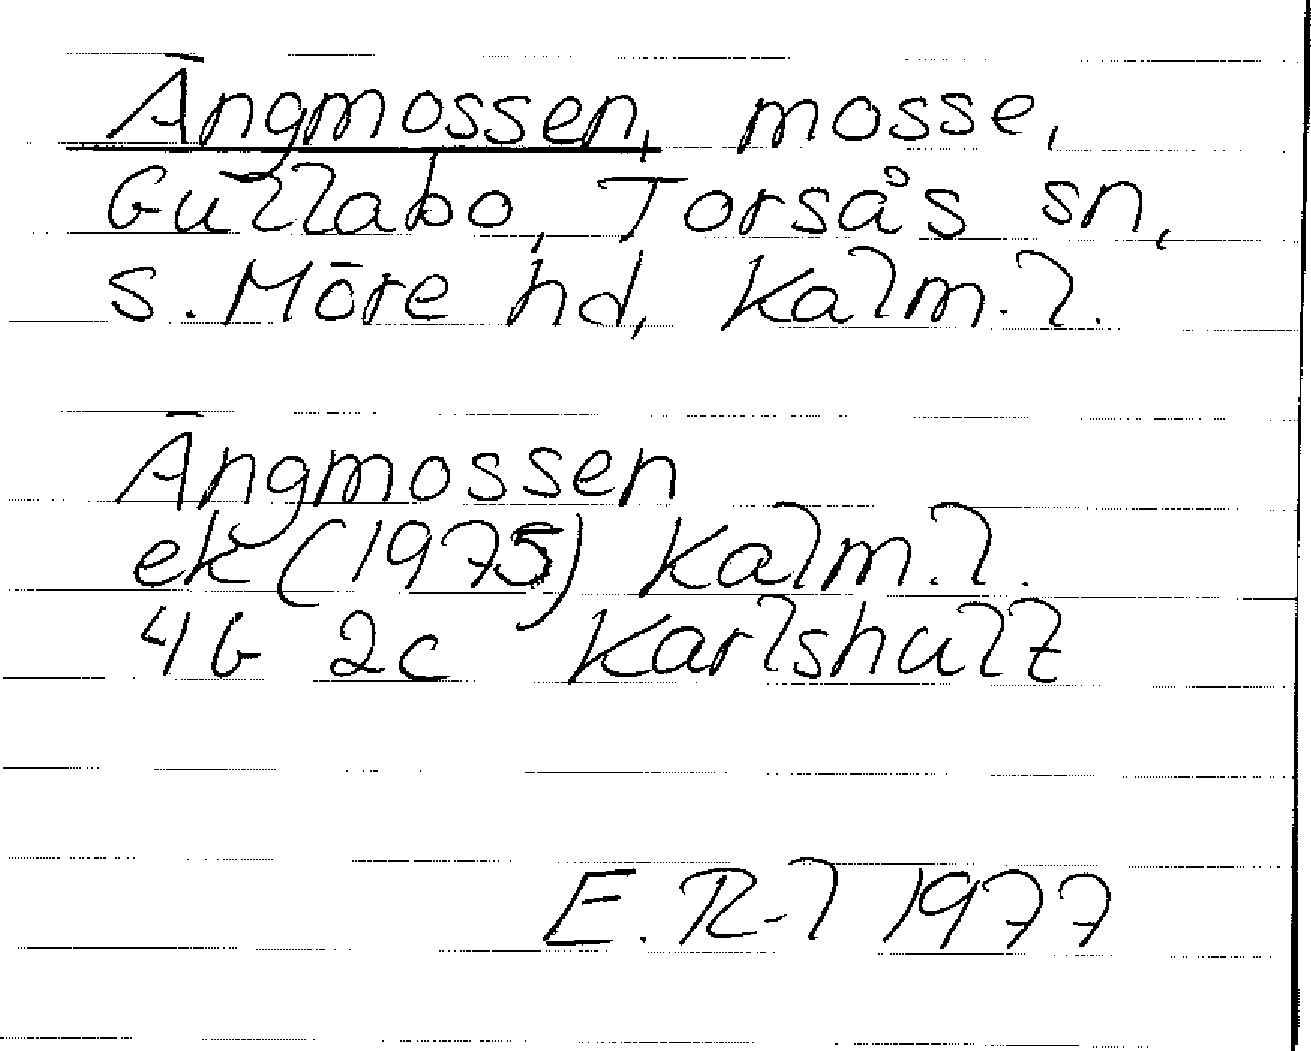 Ängmossen, mosse,
Gullabo, Torsås sn,
S. Möre hd, Kalm. l.
Ängmossen
ek (1975) Kalm. l.
4G 2c Karlshult
E. R-l 1977